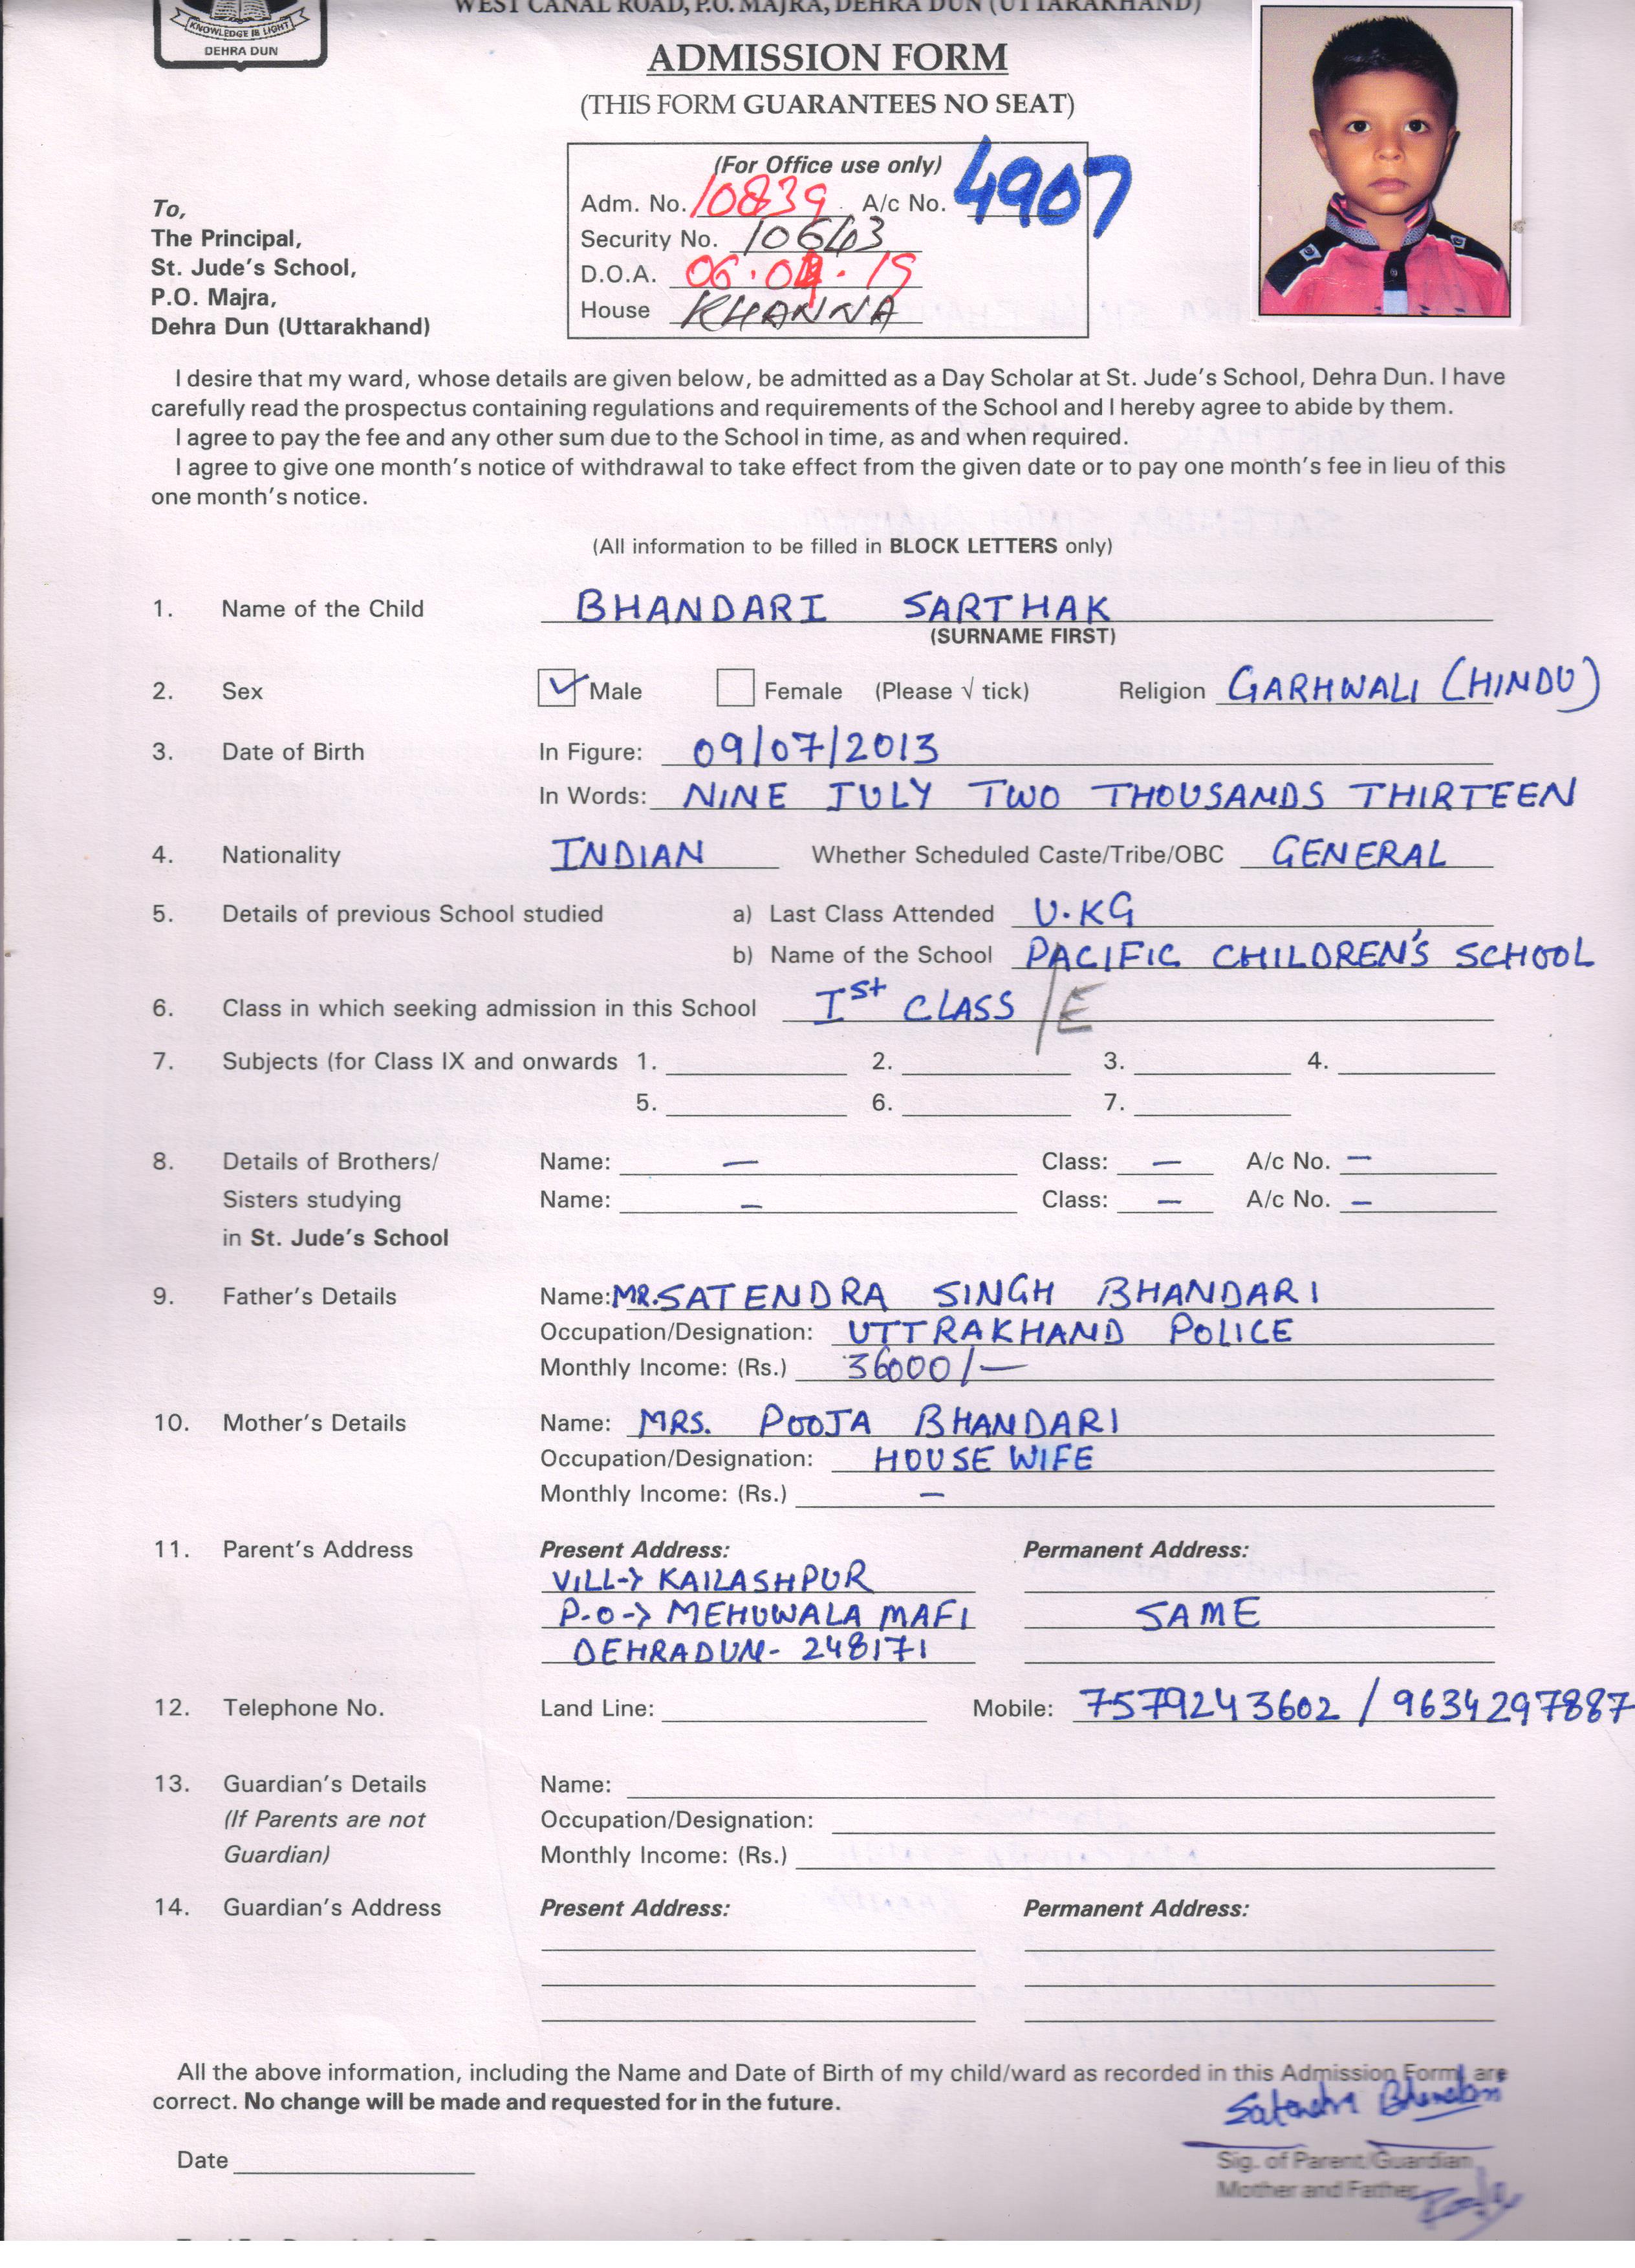 WEST CANAL ROAD, P.O. MAJRA, DEHRA DUN (UTTARAKHAND)
KNOWLEDGE IS LIGHT
DEHRA DUN
ADMISSION FORM
(THIS FORM GUARANTEES NO SEAT)
(For Office use only)
Adm. No. 10839 A/c No. 4907
Security No. 10643
D.O.A. 06.04.19
House KHANNA
To,
The Principal,
St. Jude's School,
P.O. Majra,
Dehra Dun (Uttarakhand)
I desire that my ward, whose details are given below, be admitted as a Day Scholar at St. Jude's School, Dehra Dun. I have
carefully read the prospectus containing regulations and requirements of the School and I hereby agree to abide by them.
I agree to pay the fee and any other sum due to the School in time, as and when required.
I agree to give one month's notice of withdrawal to take effect from the given date or to pay one month's fee in lieu of this
one month's notice.
(All information to be filled in BLOCK LETTERS only)
1. Name of the Child BHANDARI SARTHAK
(SURNAME FIRST)
2. Sex Male Female (Please √ tick) Religion GARHWALI (HINDU)
3. Date of Birth In Figure: 09/07/2013
In Words: NINE JULY TWO THOUSANDS THIRTEEN
4. Nationality INDIAN Whether Scheduled Caste/Tribe/OBC GENERAL
5. Details of previous School studied a) Last Class Attended U.KG
b) Name of the School PACIFIC CHILDREN'S SCHOOL
6. Class in which seeking admission in this School Ist CLASS /E
7. Subjects (for Class IX and onwards 1. 2. 3. 4.
5. 6. 7.
8. Details of Brothers/ Name: — Class: — A/c No. —
Sisters studying Name: — Class: — A/c No. —
in St. Jude's School
9. Father's Details Name: MR. SATENDRA SINGH BHANDARI
Occupation/Designation: UTTRAKHAND POLICE
Monthly Income: (Rs.) 36000/—
10. Mother's Details Name: MRS. POOJA BHANDARI
Occupation/Designation: HOUSE WIFE
Monthly Income: (Rs.) —
11. Parent's Address Present Address: Permanent Address:
VILL-> KAILASHPUR
P.O-> MEHUWALA MAFI SAME
DEHRADUN- 248171
12. Telephone No. Land Line: Mobile: 7579243602 / 9634297887
13. Guardian's Details Name:
(If Parents are not Occupation/Designation:
Guardian) Monthly Income: (Rs.)
14. Guardian's Address Present Address: Permanent Address:
All the above information, including the Name and Date of Birth of my child/ward as recorded in this Admission Form are
correct. No change will be made and requested for in the future.
Satendra Bhandari
Date
Sig. of Parent/Guardian
Mother and Father